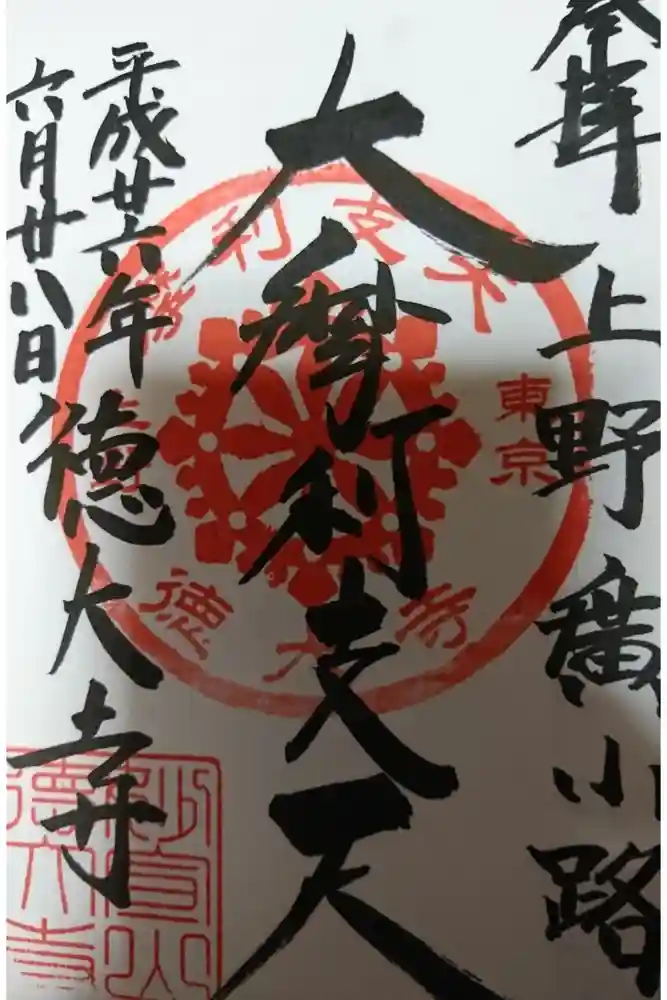 奉拝
上野廣小路
大摩利支天
平成廿六年
六月廿八日
徳大寺
摩利支天
東京
上野
徳大寺
妙宣山
徳大寺